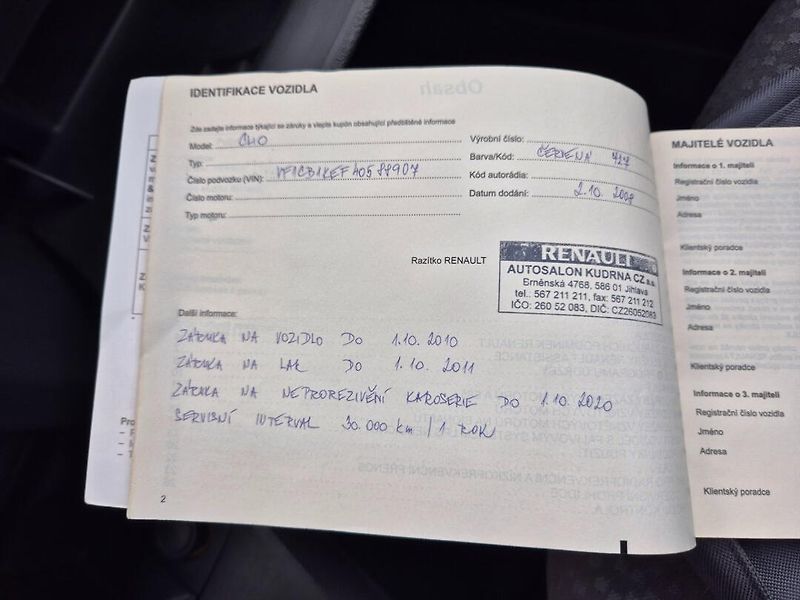 IDENTIFIKACE VOZIDLA
Zde zadejte informace týkající se záruky a vlepte kupón obsahující předtištěné informace
Model: CLIO
Typ:
Číslo podvozku (VIN): VF1CB1KEF40588907
Číslo motoru:
Typ motoru:
Výrobní číslo:
Barva/Kód: ČERVENA 727
Kód autorádia:
Datum dodání: 2.10.2008
Razítko RENAULT
RENAULT
AUTOSALON KUDRNA CZ
Brněnská 4768, 586 01 Jihlava
tel.: 567 211 211, fax: 567 211 212
IČO: 260 52 083, DIČ: CZ26052083
Další informace:
ZÁRUKA NA VOZIDLO DO 1.10.2010
ZÁRUKA NA LAK DO 1.10.2011
ZÁRUKA NA NEPROREZIVĚNÍ KAROSERIE DO 1.10.2020
SERVISNÍ INTERVAL 30.000 km / 1 ROK
2
MAJITELÉ VOZIDLA
Informace o 1. majiteli
Registrační číslo vozidla
Jméno
Adresa
Klientský poradce
Informace o 2. majiteli
Registrační číslo vozidla
Jméno
Adresa
Klientský poradce
Informace o 3. majiteli
Registrační číslo vozidla
Jméno
Adresa
Klientský poradce